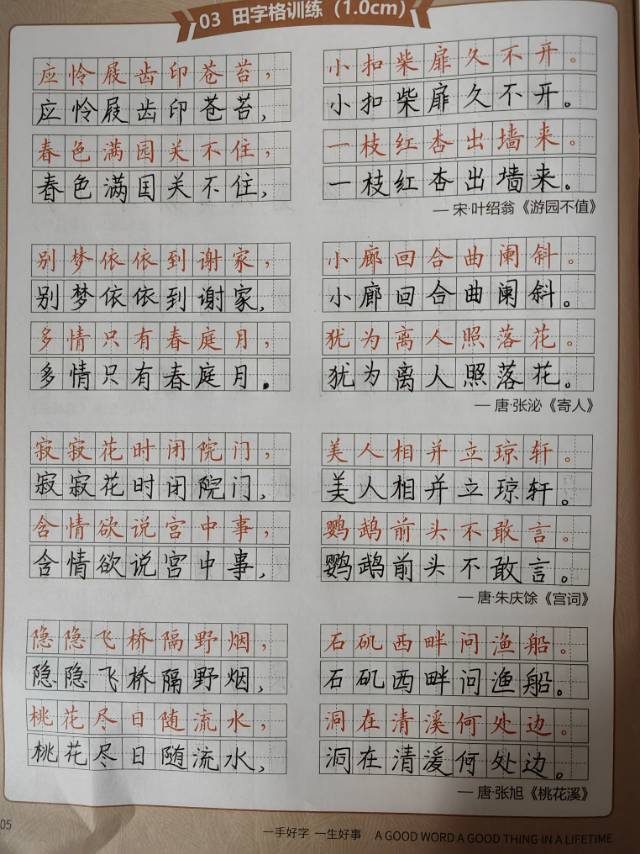 03 田字格训练（1.0cm）
应怜屐齿印苍苔，
小扣柴扉久不开。
应怜屐齿印苍苔，
小扣柴扉久不开。
春色满园关不住，
一枝红杏出墙来。
春色满国关不住，
一枝红杏出墙来。
— 宋·叶绍翁《游园不值》
别梦依依到谢家，
小廊回合曲阑斜。
别梦依依到谢家，
小廊回合曲阑斜。
多情只有春庭月，
犹为离人照落花。
多情只有春庭月.
犹为离人照落花。
— 唐·张泌《寄人》
寂寂花时闭院门，
美人相并立琼轩。
寂寂花时闭院门，
美人相并立琼轩。
含情欲说宫中事，
鹦鹉前头不敢言。
含情欲说宫中事，
鹦鹉前头不敢言。
— 唐·朱庆馀《宫词》
隐隐飞桥隔野烟，
石矶西畔问渔船。
隐隐飞桥隔野烟，
石矶西畔问渔船。
桃花尽日随流水，
洞在清溪何处边。
桃花尽日随流水，
洞在清溪何处边。
— 唐·张旭《桃花溪》
05
一手好字 一生好事 A GOOD WORD A GOOD THING IN A LIFETIME